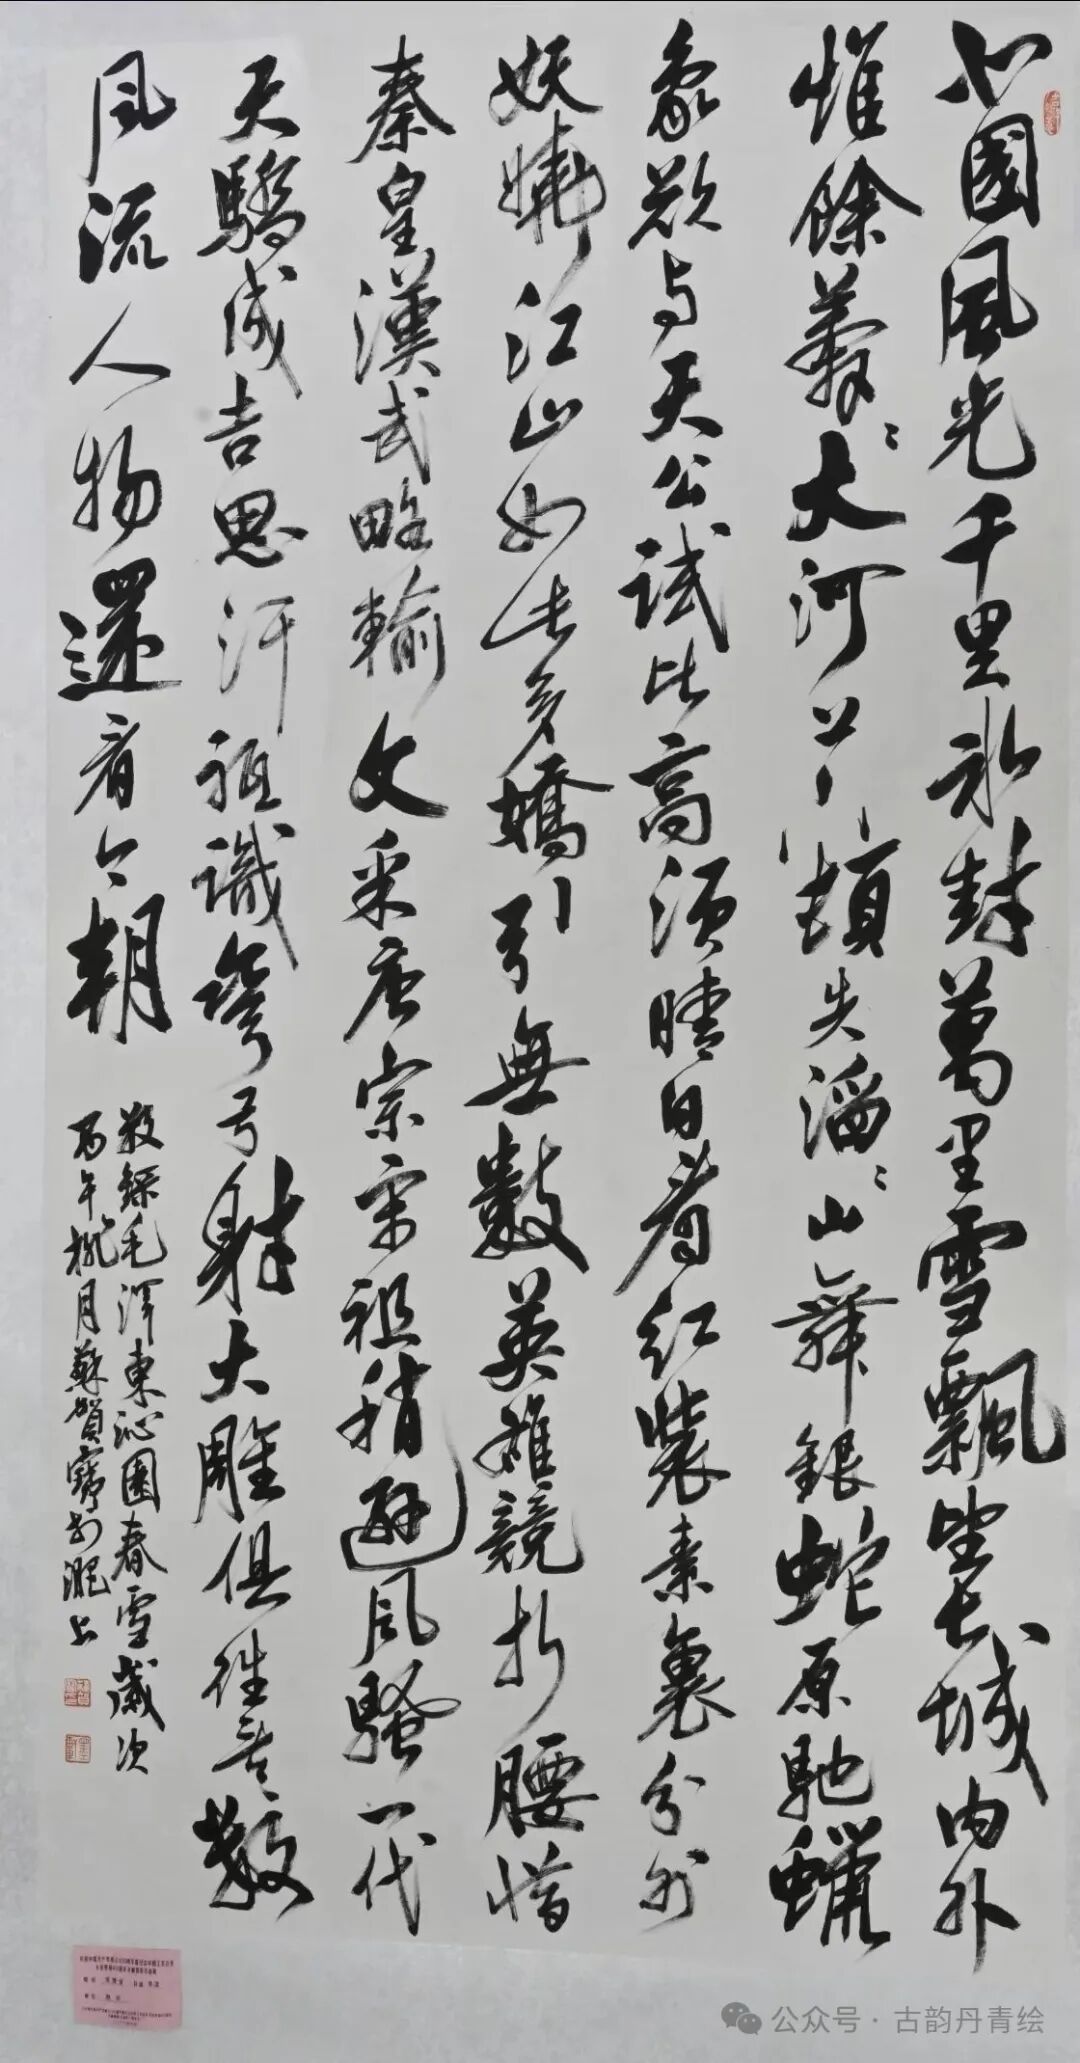 北國風光千里氷封萬里雪飄望長城内外
惟餘莽々大河上下頓失滔々山舞銀蛇原馳蠟
象欲与天公試比高須晴日看紅裝素裹分外
妖嬈江山如此多嬌引無數英雄競折腰惜
秦皇漢武略輸文采唐宗宋祖稍遜風騷一代
天驕成吉思汗祗識彎弓射大雕俱往矣數
風流人物還看今朝
敬錄毛澤東沁園春雪歲次
丙午桃月蘇賀寶於滬上
公众号·古韵丹青绘